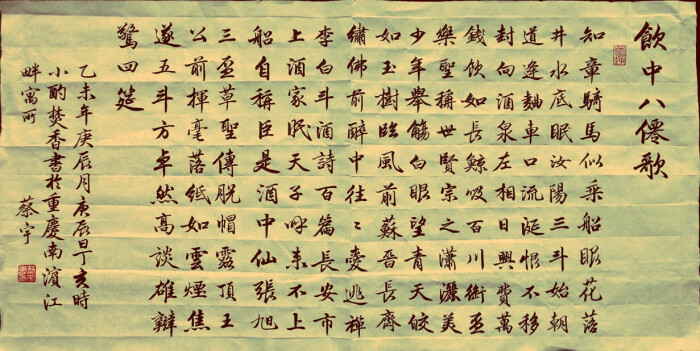 飲中八僊歌
知章騎馬似乘船眼花落
井水底眠汝陽三斗始朝
道逢麯車口流涎恨不移
封向酒泉左相日興費萬
錢飲如長鯨吸百川銜盃
樂聖稱世賢宗之瀟灑美
少年舉觴白眼望青天皎
如玉樹臨風前蘇晉長齋
繡佛前醉中往〻愛逃禪
李白斗酒詩百篇長安市
上酒家眠天子呼來不上
船自稱臣是酒中仙張旭
三盃草聖傳脫帽露頂王
公前揮毫落紙如雲煙焦
遂五斗方卓然高談雄辯
驚四筵
乙未年庚辰月庚辰日丁亥時
小酌焚香書於重慶南濱江
畔寓所
蔡宇